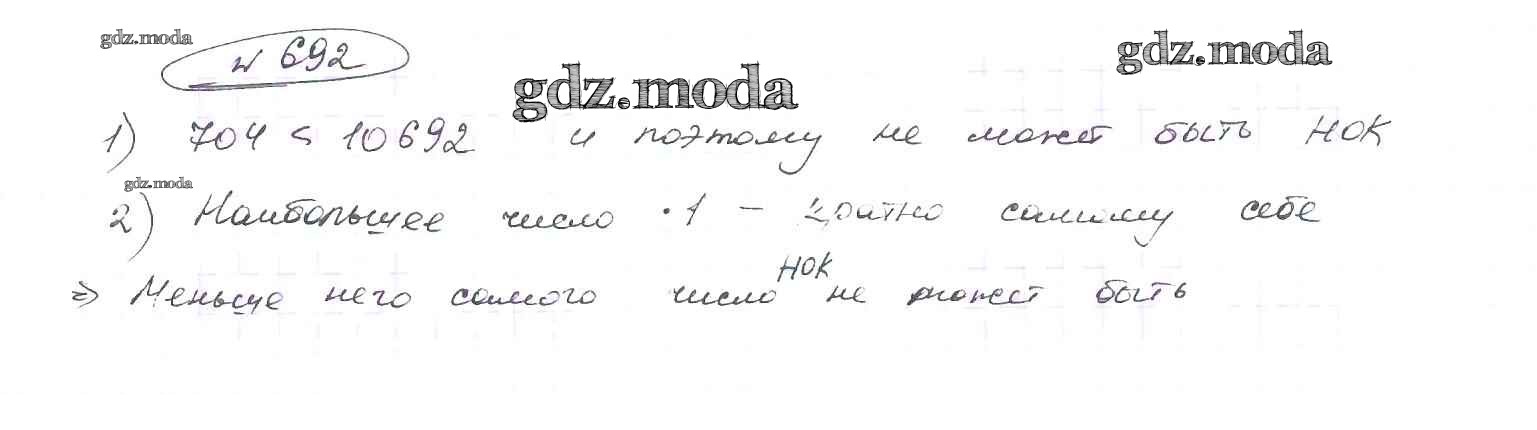 gdz.moda
№ 692
gdz.moda
gdz.moda
1) 704 < 10692 и поэтому не может быть НОК
gdz.moda
2) Наибольшее число · 1 – кратно самому себе
НОК
⇒ Меньше него самого число не может быть